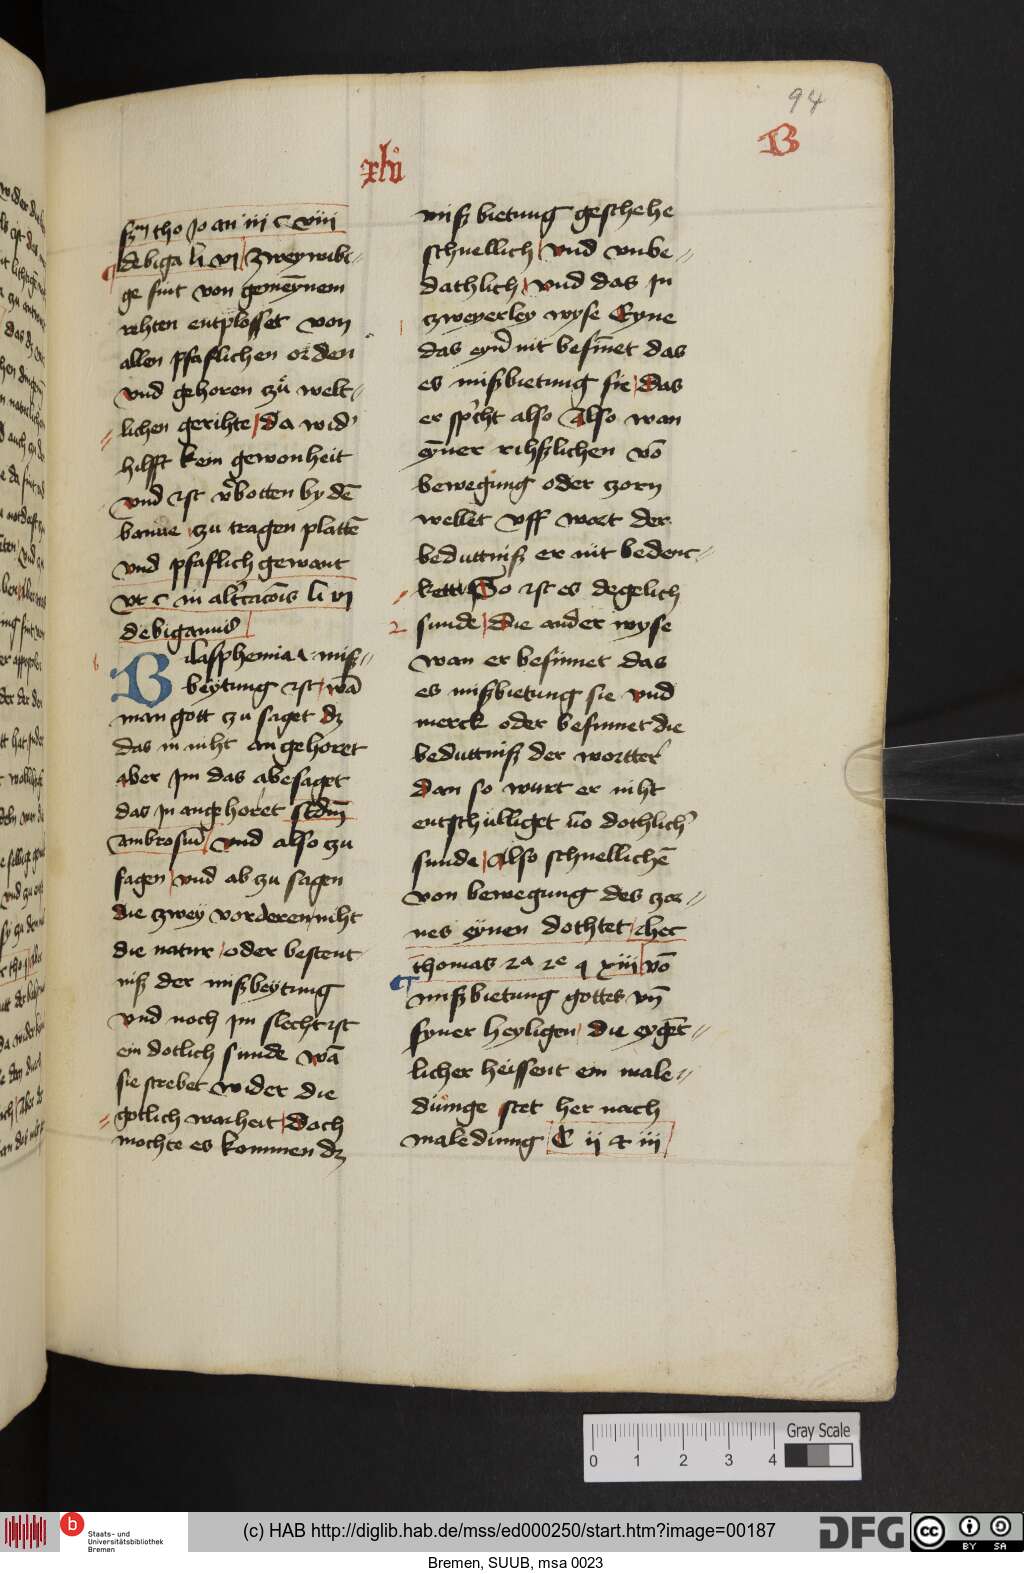 94
B
xlii
scdm tho Jo an iii c viii
de biga li vi Zweywibi=
ge sint von gemēynem
rehten entplosset von
allen pfaflichen orden
vnd gehoren zů welt=
lichen gerihte da wid'
hilfft kein gewonheit
vnd ist v'botten by dē
banne zu tragen plattē
vnd pfaflich gewant
vt c in alt'cacōis li vi
de bigamis
Blasphemia r miß=
beytung ist wā
man gott zu saget dz
das in niht angehoret
aber jm das abesaget
das jn angehoret scdm
ambrosiū vnd also zu
sagen vnd ab zu sagen
die zwey vorderen niht
die natur oder bestent
niß der mißbeytung
vnd noch jm slecht ist
ein dotlich sunde wā
sie strebet wider die
gotlich warheit Doch
mochte es kommen dz
mißbietung geschehe
schnellich vnd vnbe=
dathlich vnd das jn
zweyerley wyse Eyne
das eyn' nit besinnet das
es mißbietung sie Das
er spricht also Also wan
eyner rihßlichen vō
bewegung oder zorn
wellet vff wort der
beduttniß er nit bedenc=
kett So ist es degelich
2 sunde Die ander wyse
wan er besinnet das
es mißbietung sie vnd
merck oder besinnet die
beduttniß der wortter
dan so wurt er niht
entschulliget vō dothlich'
sunde Also schnellichē
von bewegung des zor=
nes eynen dothtet hec
thomas 2a 2e q xiii vō
mißbietung gottes vn̄
syner heyligen die eyger=
licher heissent ein male=
diunge stet her nach
malediung C ij et iij
Gray Scale
0 1 2 3 4
b Staats- und
Universitätsbibliothek
Bremen
(c) HAB http://diglib.hab.de/mss/ed000250/start.htm?image=00187
DFG
cc BY SA
Bremen, SUUB, msa 0023